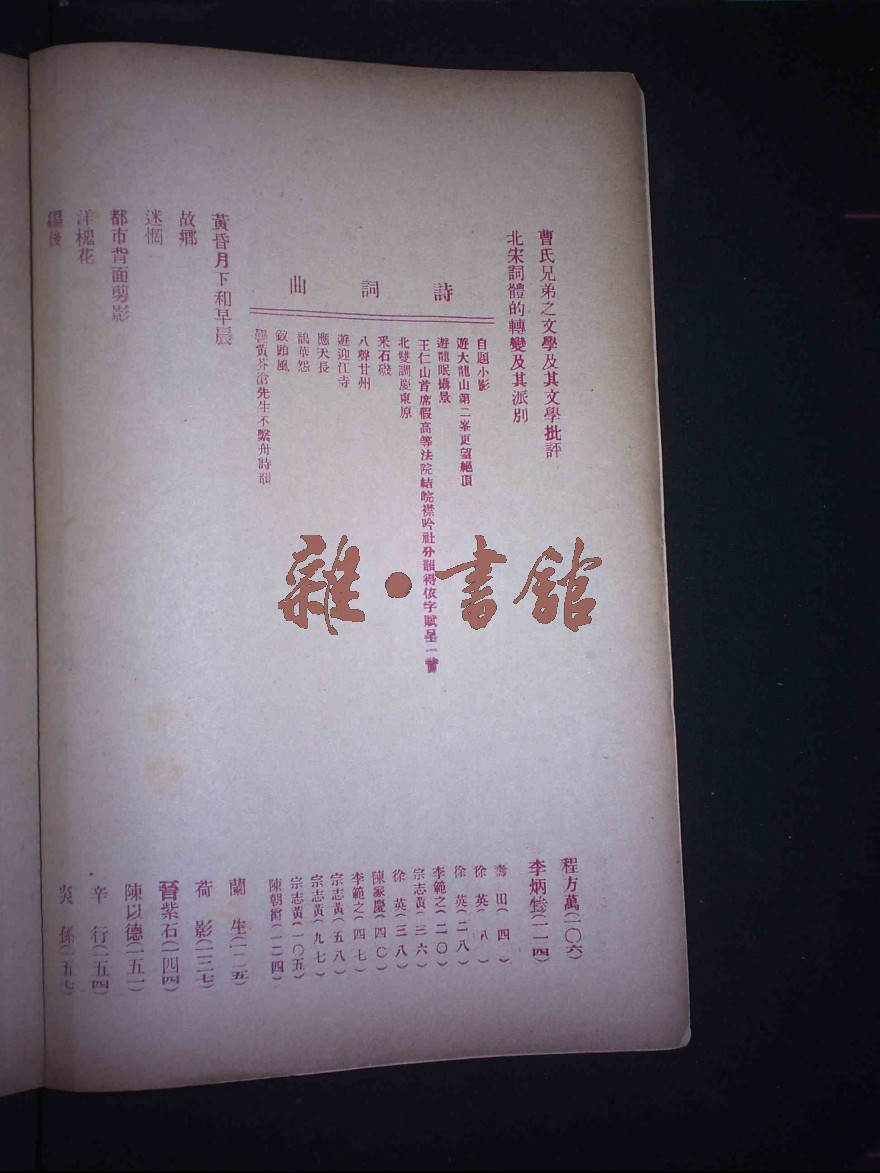 曹氏兄弟之文學及其文學批評
程方萬(一〇六)
北宋詞體的轉變及其派別
李炳㙙(一一四)
詩詞曲
自題小影
壽田(四)
遊大龍山第二峯更望絕頂
徐英(八)
遊龍眠攝景
徐英(二八)
王仁山首席假高等法院結皖襟吟社分韻得依字賦呈一首
李範之(二〇)
北雙調慶東原
宗志黃(三六)
采石磯
徐英(三八)
八聲甘州
陳家慶(四〇)
遊迎江寺
李範之(四七)
應天長
宗志黃(五八)
鵲華怨
宗志黃(九七)
殺顋風
宗志黃(一〇五)
黃芬滄先生不繫舟詩韻
陳朝爵(一二四)
黃昏月下和早晨
蘭生(一二五)
故鄉
荷影(一三七)
迷惘
晉紫石(一四四)
都市背面剪影
陳以德(一五一)
洋槐花
辛行(一五四)
編後
炎孫(一五七)
雜·書館